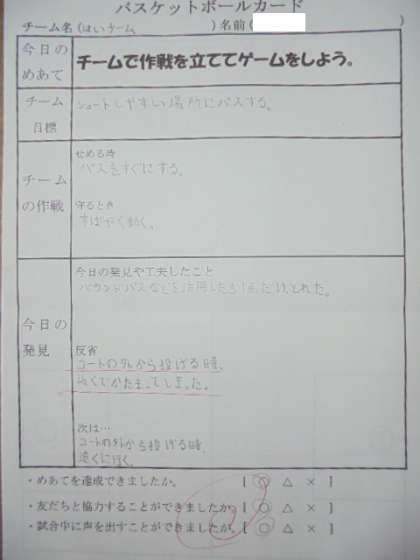 バスケットボールカード
チーム名(はいチーム )名前( )
今日の
めあて
チームで作戦を立ててゲームをしよう。
チーム
目標
シュートしやすい場所にパスする。
チーム
の作戦
せめる時
パスをすぐにする。
守るとき
すばやく動く。
今日の
発見
今日の発見や工夫したこと
バウンドパスなどを活用したら1点だけとれた。
反省
コートの外から投げる時、
近くでかたまってしまった。
次は…
コートの外から投げる時、
遠くに行く。
・めあてを達成できましたか。 [ ○ △ × ]
・友だちと協力することができましたか。 [ ○ △ × ]
・試合中に声を出すことができましたか。 [ ○ △ × ]